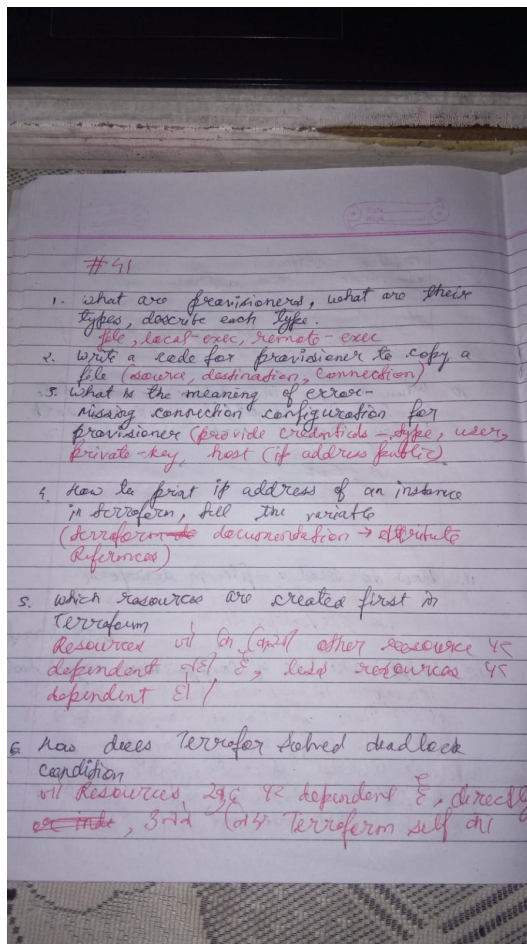 #41
1. What are provisioners, what are their
types, describe each type.
file, local-exec, remote-exec
2. Write a code for provisioner to copy a
file (source, destination, connection)
3. What is the meaning of error-
Missing connection configuration for
provisioner (provide credentials - type, user,
private-key, host (ip address public)
4. How to print ip address of an instance
in terraform, tell the variable
(terraform documentation → attribute
References)
5. Which resources are created first in
Terraform
Resources जो कि किसी other resource पर
dependent नहीं हैं, less resources पर
dependent हो /
6. How does Terrafor solved deadlock
condition
जो Resources खुद पर dependent हैं, directly
, उनके लिए Terraform self का